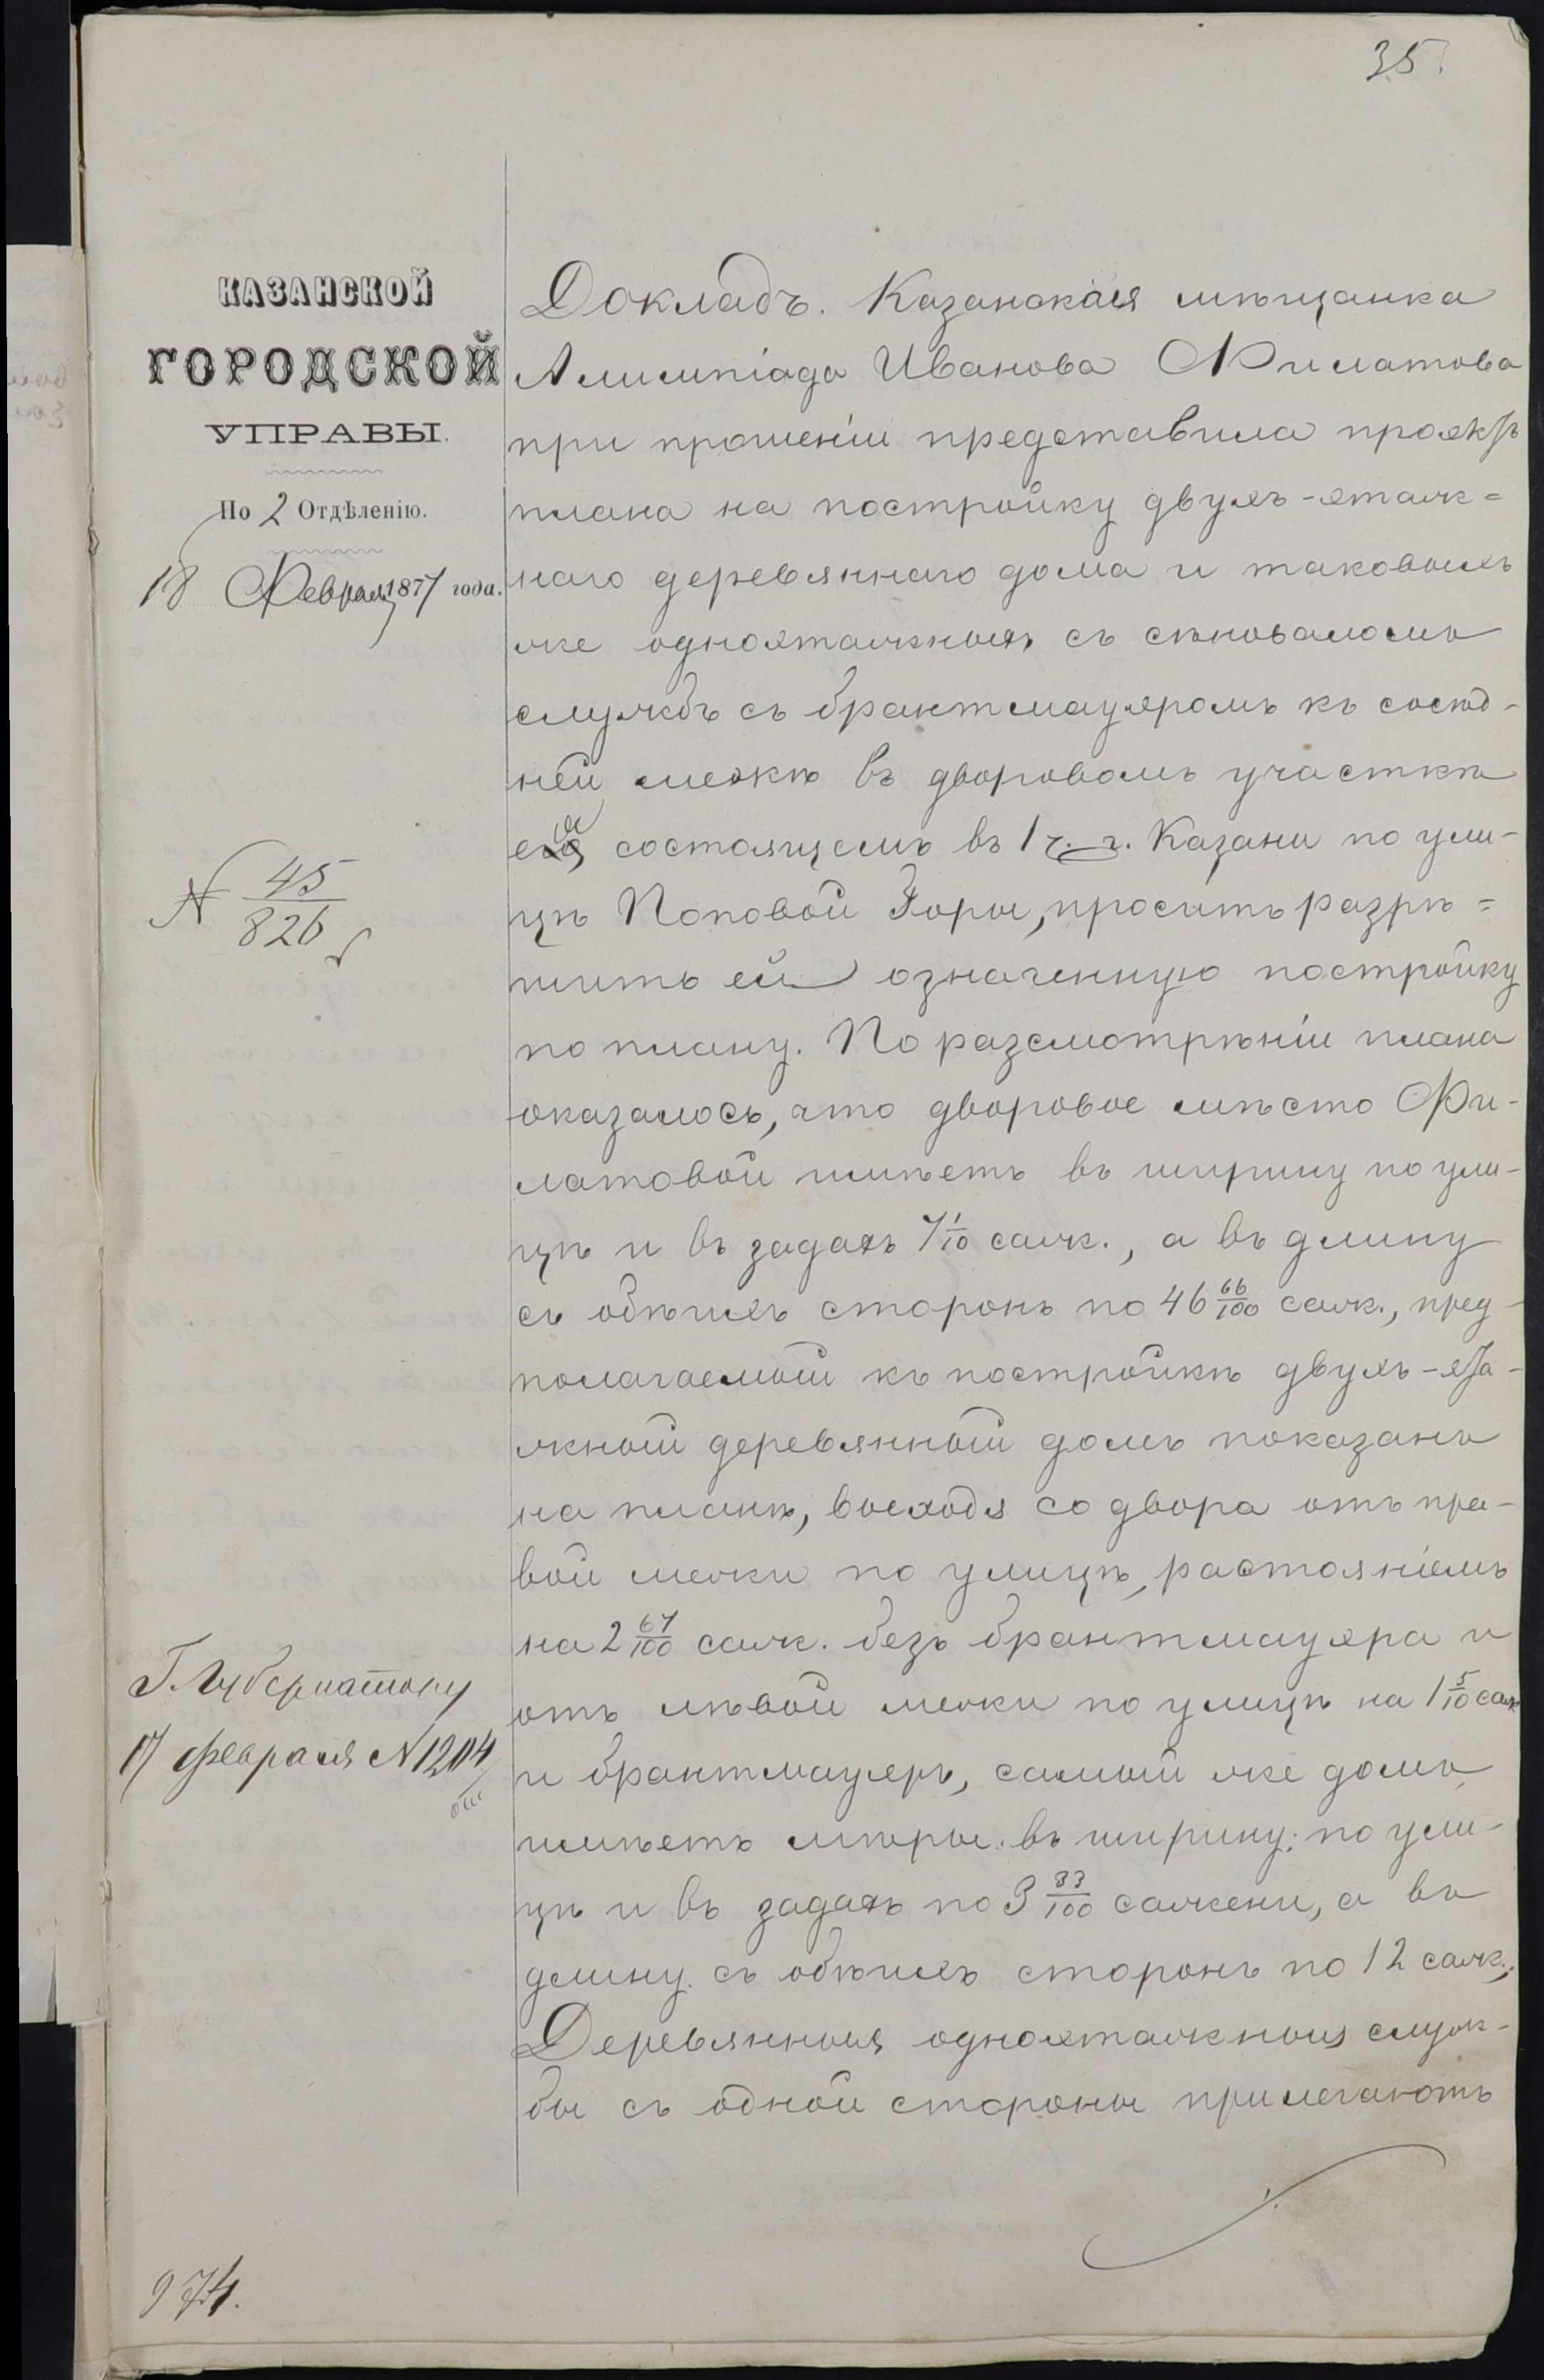 35.
КАЗАНСКОЙ
ГОРОДСКОЙ
УПРАВЫ.
По 2 Отдѣленію.
18 Февраля 1877 года.
N 45/826
Г. Губернатору
17 февраля N 1204
974.
Докладъ. Казанская мѣщанка
Алимпіада Иванова Филатова
при прошеніи представила проэктъ
плана на постройку двухъ-этаж=
наго деревяннаго дома и таковыхъ
же одноэтажныхъ съ сѣноваломъ
службъ съ брантмауэромъ къ сосѣд-
ней межѣ въ дворовомъ участкѣ
ея состоящемъ въ 1 ч. г. Казани по ули-
цѣ Поповой Горы, проситъ разрѣ=
шить ей означенную постройку
по плану. По разсмотрѣніи плана
оказалось, что дворовое мѣсто Фи-
латовой имѣетъ въ ширину по ули-
цѣ и въ задахъ 7 1/10 саж., а въ длину
съ обѣихъ сторонъ по 46 66/100 саж., пред-
полагаемый къ постройкѣ двухъ-эта-
жный деревянный домъ показанъ
на планѣ, выходя со двора отъ пра-
вой межи по улицѣ, растояніемъ
на 2 67/100 саж. безъ брантмауэра и
отъ лѣвой межи по улицѣ на 1 5/10 саж
и брантмауеръ, самый же домъ
имѣетъ мѣры: въ ширину: по ули-
цѣ и въ задахъ по 3 33/100 сажени, а въ
длину съ обѣихъ сторонъ по 12 саж.;
Деревянныя одноэтажныя служ-
бы съ одной стороны прилегаютъ